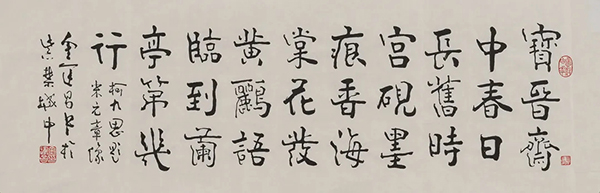 寶晉齋
中春日
長舊時
宮硯墨
痕香海
棠花發
黄鸝語
臨到蘭
亭第幾
行
柯九思題
米元章像
金运昌书於
紫禁城中